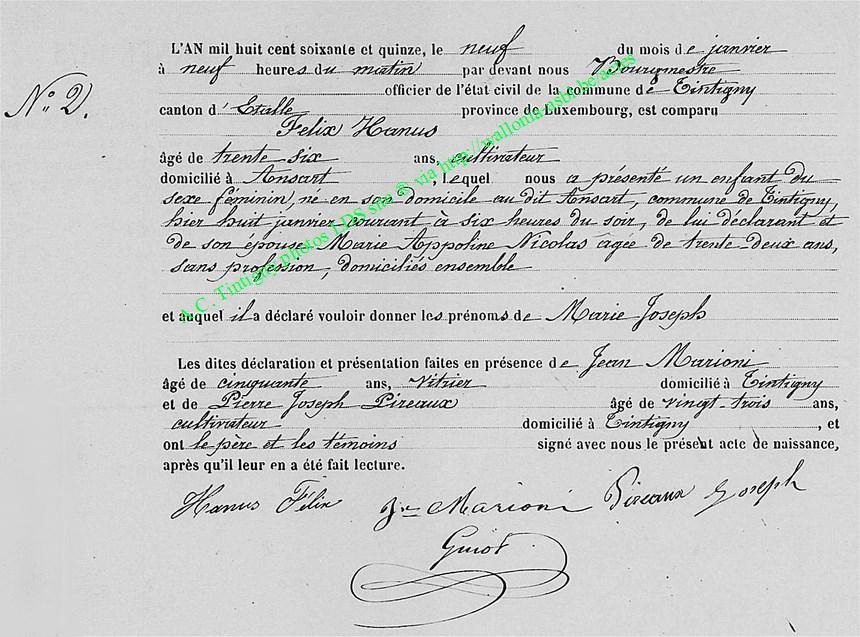 N° 2.
L'AN mil huit cent soixante et quinze, le neuf du mois de janvier
à neuf heures du matin par devant nous Bourgmestre
officier de l'état civil de la commune de Tintigny
canton d'Etalle province de Luxembourg, est comparu
Felix Hanus
âgé de trente-six ans, cultivateur
domicilié à Ansart, lequel nous a présenté un enfant du
sexe féminin, né en son domicile au dit Ansart, commune de Tintigny,
hier huit janvier courant à six heures du soir, de lui déclarant et
de son épouse Marie Appoline Nicolas agée de trente-deux ans,
sans profession, domiciliés ensemble
et auquel il a déclaré vouloir donner les prénoms de Marie Joseph
Les dites déclaration et présentation faites en présence de Jean Marioni
âgé de cinquante ans, vitrier domicilié à Tintigny
et de Pierre Joseph Pireaux âgé de vingt-trois ans,
cultivateur domicilié à Tintigny, et
ont le père et les témoins signé avec nous le présent acte de naissance,
après qu'il leur en a été fait lecture.
Hanus Félix Jn Marioni Pireaux Joseph
Guiot
A.C. Tintigny photos LDS site ® via http://wallonia-asbl.be/actes